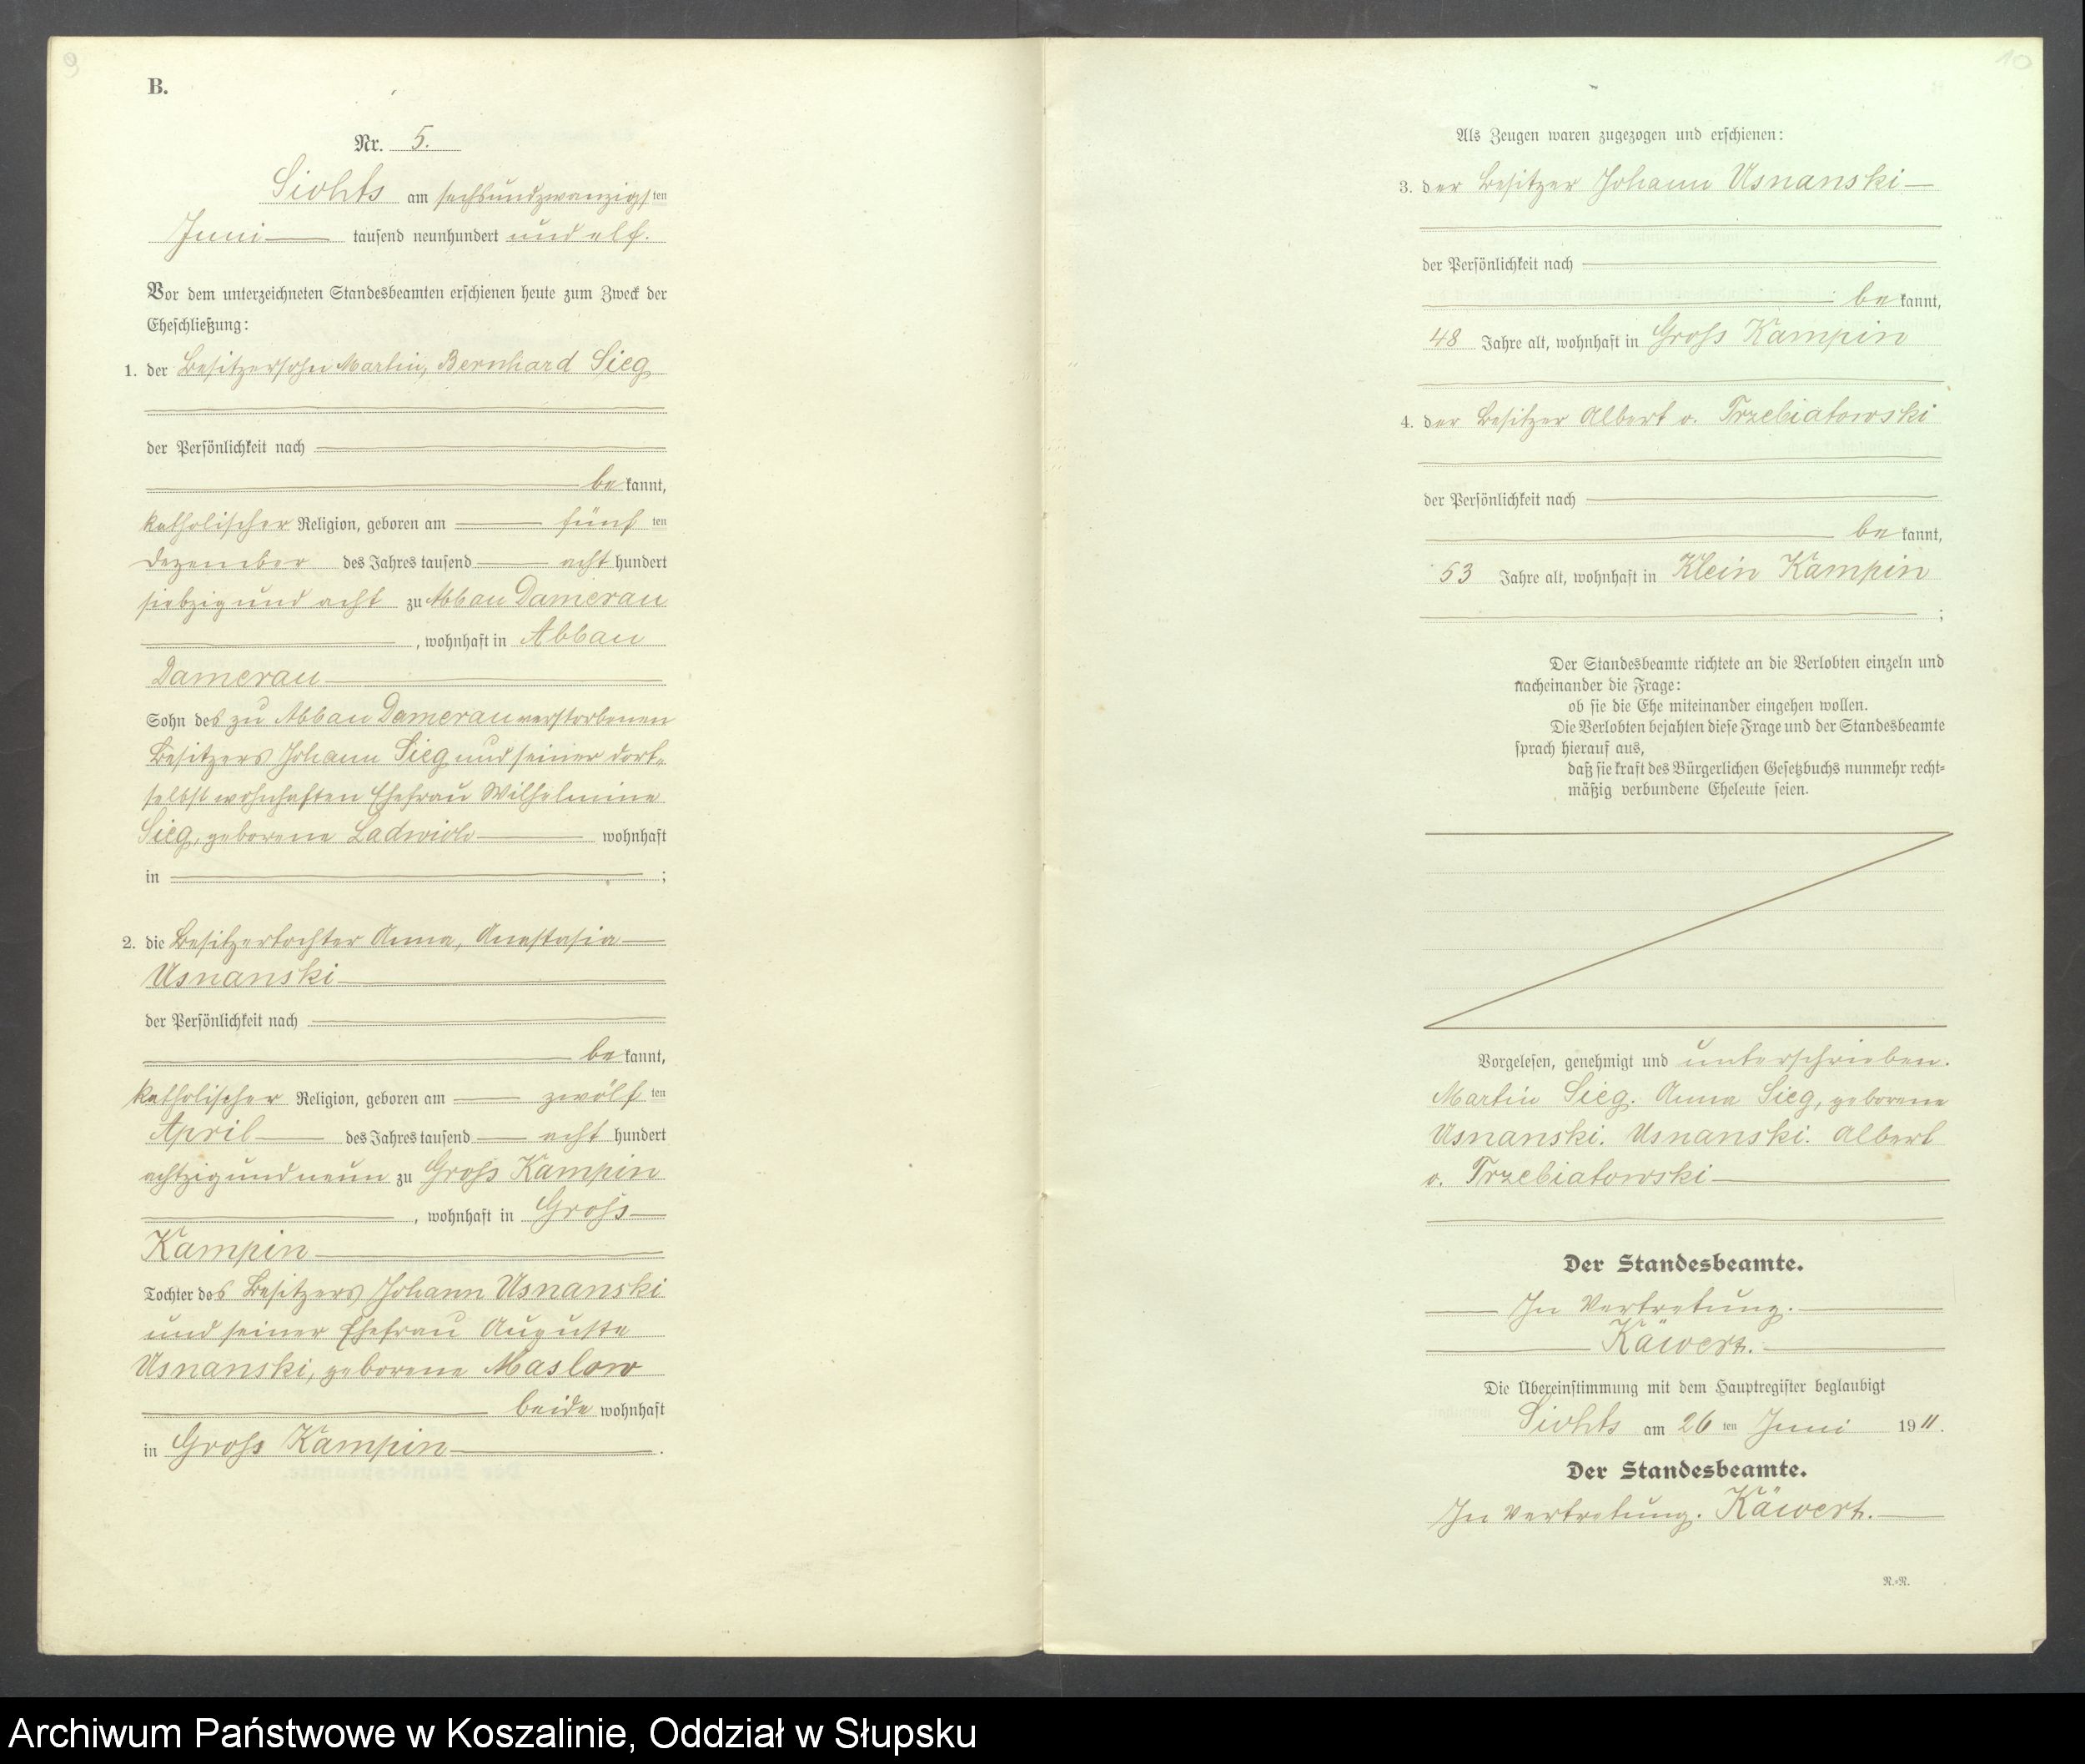 9
B.
Nr. 5.
Sichts am sechsundzwanzigsten
Juni tausend neunhundert und elf.
Vor dem unterzeichneten Standesbeamten erschienen heute zum Zweck der
Eheschließung:
1. der Besitzersohn Martin, Bernhard Sieg
der Persönlichkeit nach
bekannt,
katholischer Religion, geboren am fünften
Dezember des Jahres tausend acht hundert
siebzig und acht zu Abbau Damerau
, wohnhaft in Abbau
Damerau
Sohn des zu Abbau Damerau verstorbenen
Besitzers Johann Sieg und seiner dort-
selbst wohnhaften Ehefrau Wilhelmine
Sieg, geborene Ladwich wohnhaft
in ;
2. die Besitzertochter Anna, Anastasia
Usnanski
der Persönlichkeit nach
bekannt,
katholischer Religion, geboren am zwölften
April des Jahres tausend acht hundert
achtzig und neun zu Gross Kampin
, wohnhaft in Gross
Kampin
Tochter des Besitzers Johann Usnanski
und seiner Ehefrau Auguste
Usnanski, geborene Maslow
beide wohnhaft
in Gross Kampin .
10
Als Zeugen waren zugezogen und erschienen:
3. der Besitzer Johann Usnanski
der Persönlichkeit nach
bekannt,
48 Jahre alt, wohnhaft in Gross Kampin
4. der Besitzer Albert v. Trzebiatowski
der Persönlichkeit nach
bekannt,
53 Jahre alt, wohnhaft in Klein Kampin
;
Der Standesbeamte richtete an die Verlobten einzeln und
nacheinander die Frage:
ob sie die Ehe miteinander eingehen wollen.
Die Verlobten bejahten diese Frage und der Standesbeamte
sprach hierauf aus,
daß sie kraft des Bürgerlichen Gesetzbuchs nunmehr recht-
mäßig verbundene Eheleute seien.
Vorgelesen, genehmigt und unterschrieben.
Martin Sieg. Anna Sieg, geborene
Usnanski. Usnanski. Albert
v. Trzebiatowski
Der Standesbeamte.
In Vertretung.
Käwert.
Die Übereinstimmung mit dem Hauptregister beglaubigt
Sichts am 26ten Juni 1911.
Der Standesbeamte.
In Vertretung. Käwert.
R.-R.
Archiwum Państwowe w Koszalinie, Oddział w Słupsku